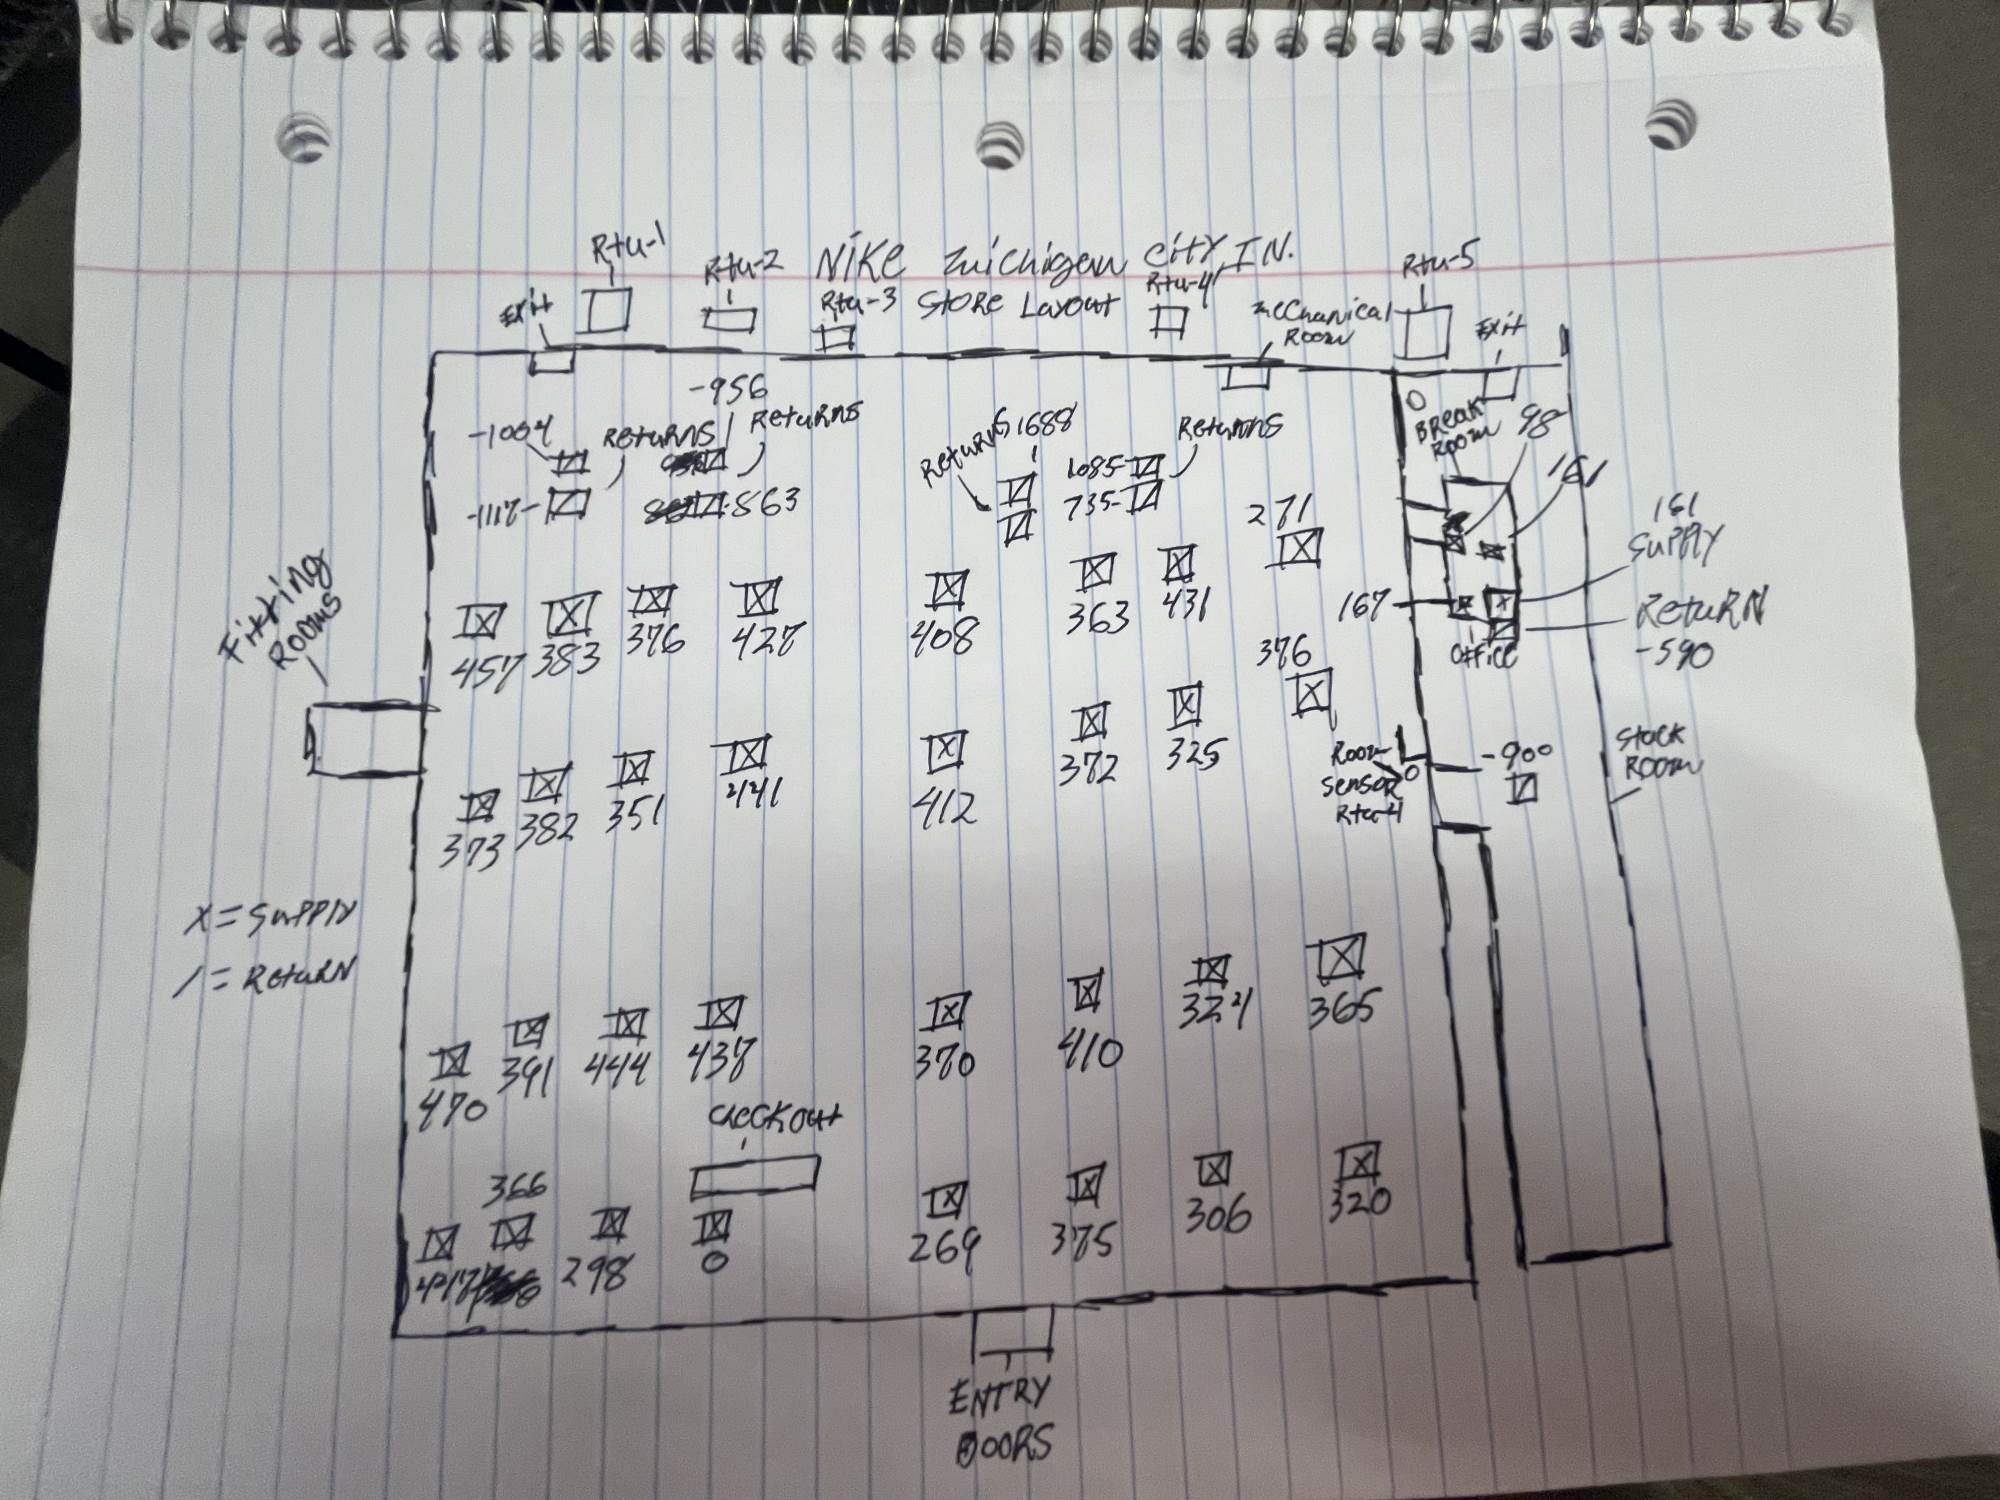 Rtu-1
Rtu-2
NIKE Michigan City IN.
Rtu-3 Store Layout
Rtu-4
Rtu-5
Exit
Mechanical
Room
Exit
-956
-1004
Returns
Returns
Returns
1688
Returns
1085
735
-1117
-863
0
Break
Room
98
161
271
161
Supply
Return
-590
167
Office
Fitting
Rooms
457
383
376
427
408
363
431
376
373
382
351
441
412
372
325
Room
Sensor
Rtu-4
-900
Stock
Room
X = Supply
/ = Return
470
391
444
437
370
410
324
365
Checkout
366
298
0
269
375
306
320
ENTRY
DOORS